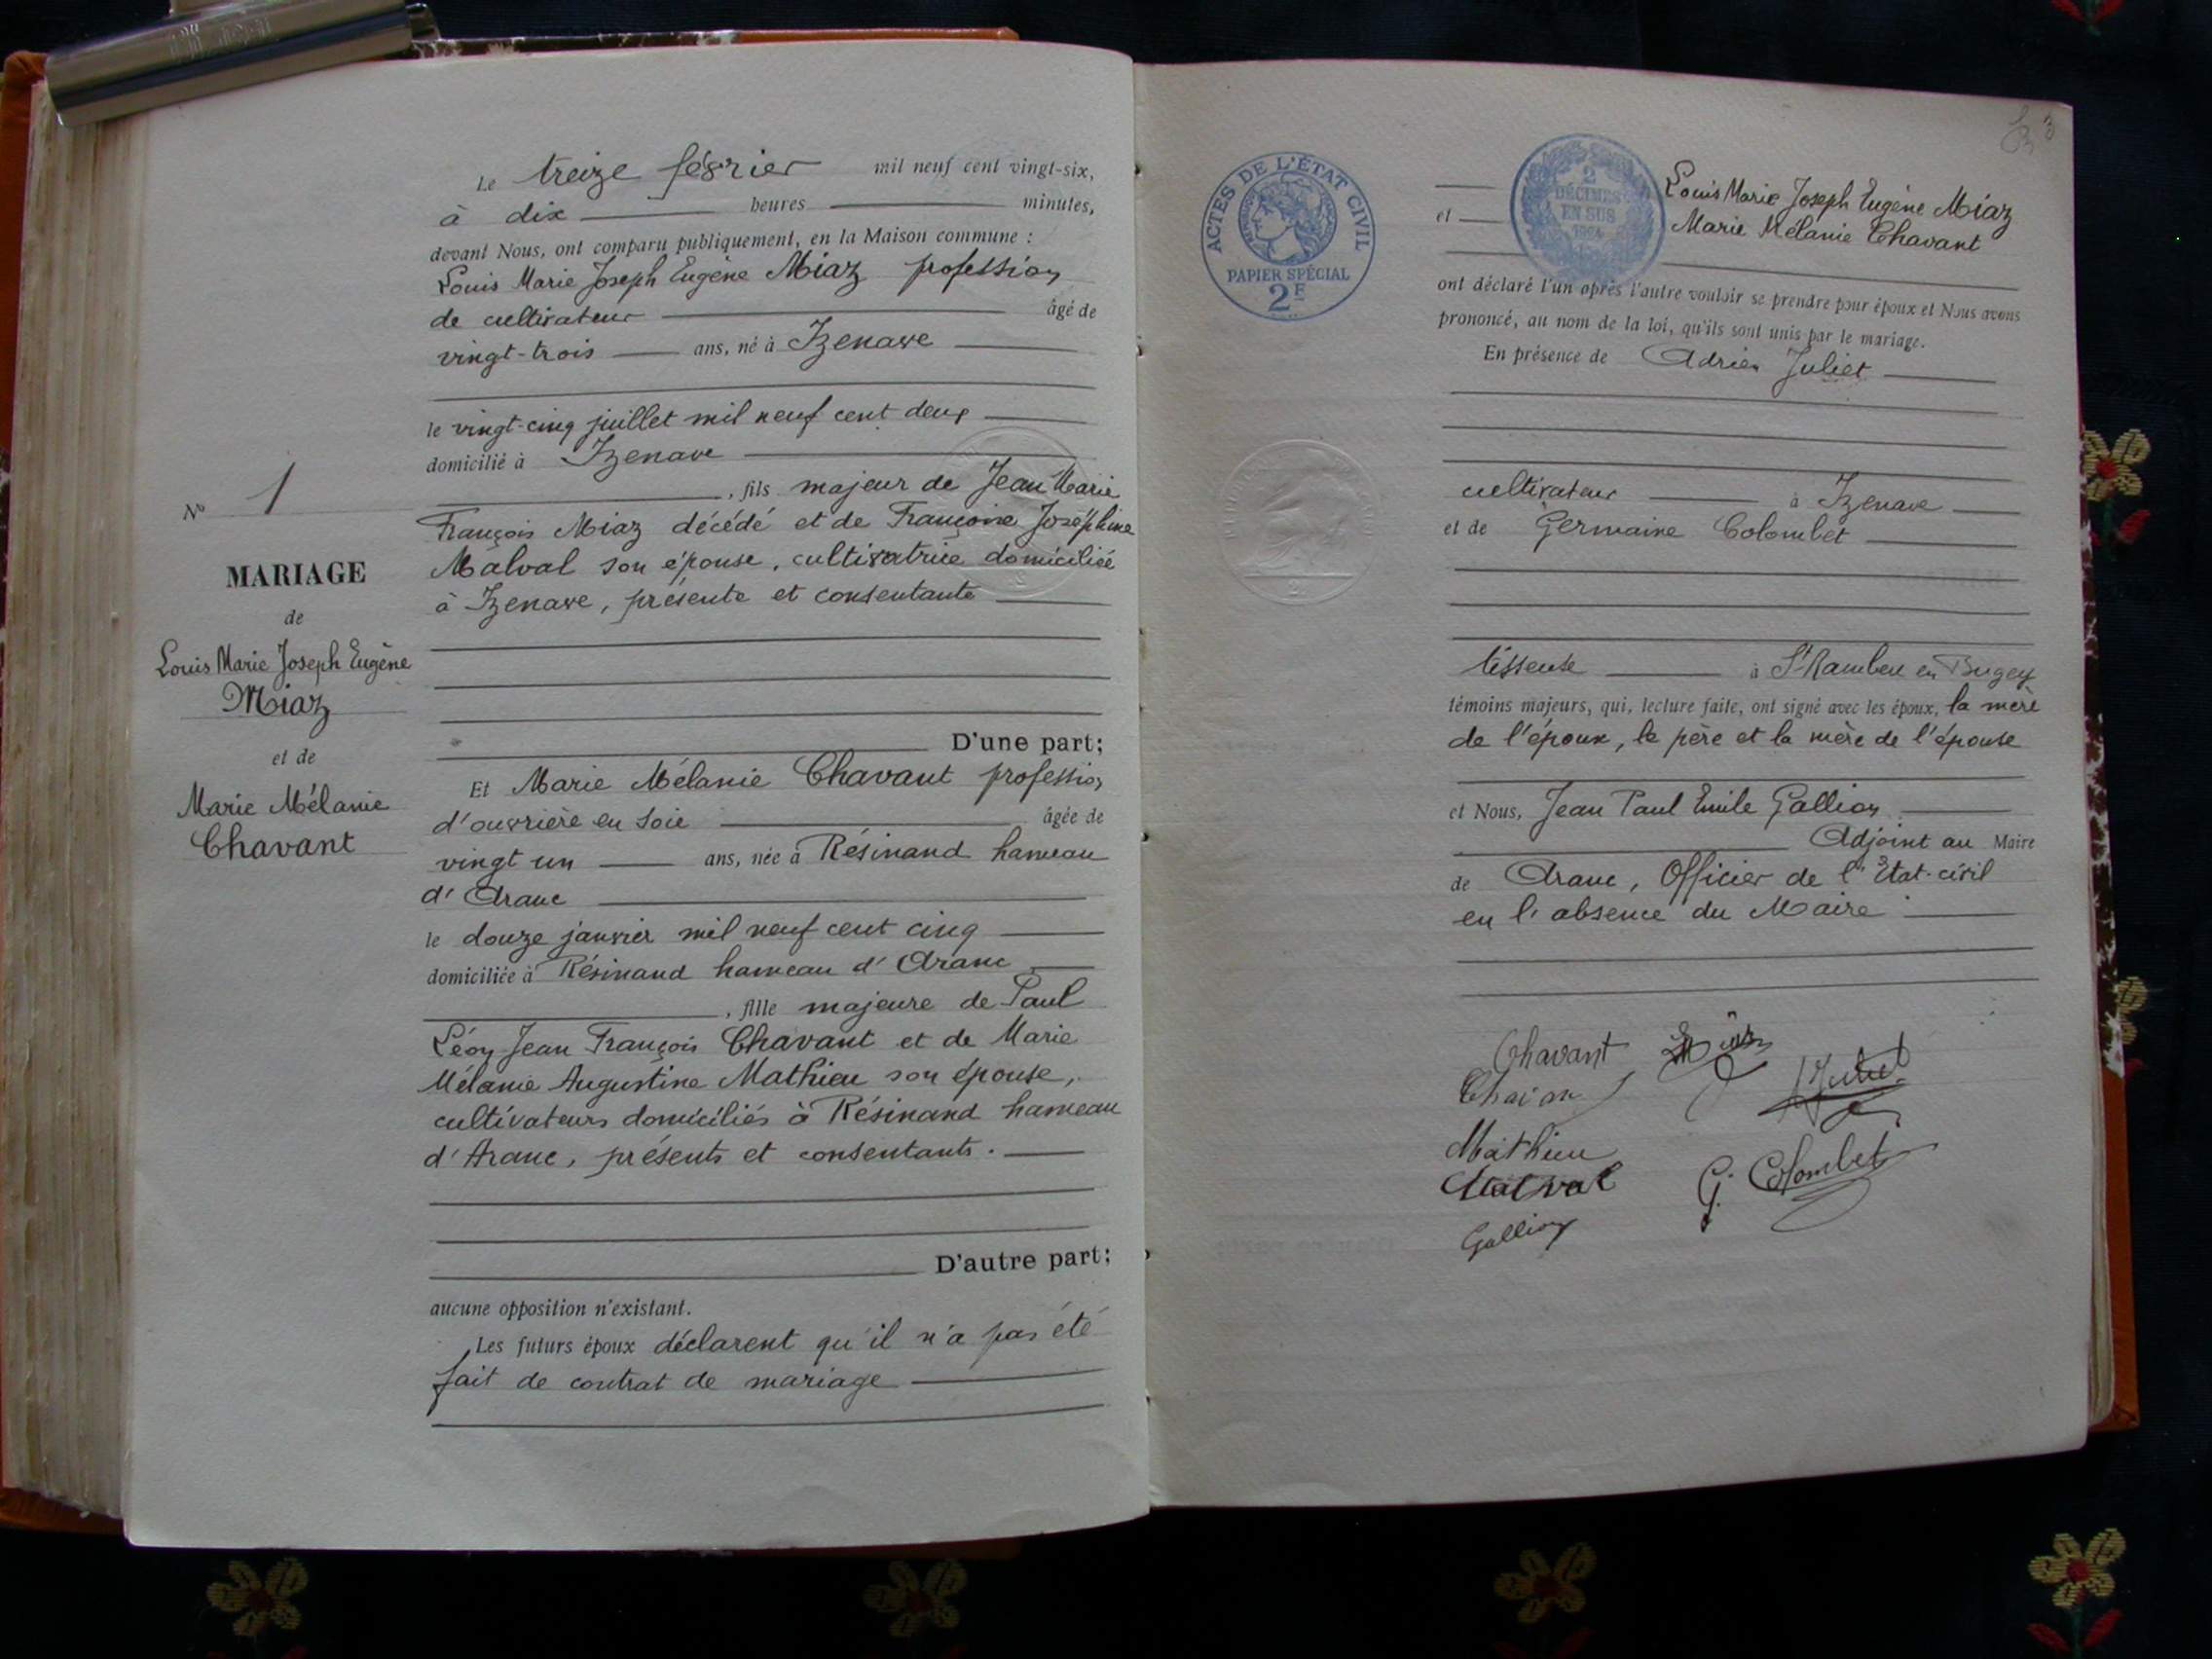 Le treize février mil neuf cent vingt-six,
à dix heures minutes,
devant Nous, ont comparu publiquement, en la Maison commune :
Louis Marie Joseph Eugène Miaz profession
de cultivateur âgé de
vingt-trois ans, né à Izenave
le vingt-cinq juillet mil neuf cent deux
domicilié à Izenave
, fils majeur de Jean Marie
François Miaz décédé et de Françoise Joséphine
Malval son épouse, cultivatrice domiciliée
à Izenave, présente et consentante
D'une part;
No 1
MARIAGE
de
Louis Marie Joseph Eugène
Miaz
et de
Marie Mélanie
Chavant
Et Marie Mélanie Chavant profession
d'ouvrière en soie âgée de
vingt un ans, née à Résinand hameau
d'Aranc
le douze janvier mil neuf cent cinq
domiciliée à Résinand hameau d'Aranc
, fille majeure de Paul
Léon Jean François Chavant et de Marie
Mélanie Augustine Mathieu son épouse,
cultivateurs domiciliés à Résinand hameau
d'Aranc, présents et consentants.
D'autre part;
aucune opposition n'existant.
Les futurs époux déclarent qu'il n'a pas été
fait de contrat de mariage
ACTES DE L'ÉTAT CIVIL
PAPIER SPÉCIAL
2F
2
DÉCIMES
EN SUS
Louis Marie Joseph Eugène Miaz
et Marie Mélanie Chavant
ont déclaré l'un après l'autre vouloir se prendre pour époux et Nous avons
prononcé, au nom de la loi, qu'ils sont unis par le mariage.
En présence de Adrien Juliet
cultivateur à Izenave
et de Germaine Colombet
tisseuse à St Rambert en Bugey
témoins majeurs, qui, lecture faite, ont signé avec les époux, la mère
de l'époux, le père et la mère de l'épouse
et Nous, Jean Paul Emile Gallion
Adjoint au Maire
de Aranc, Officier de l'Etat-civil
en l'absence du Maire
Chavant Miaz
Juliet
Mathieu
Malval G. Colombet
Gallion